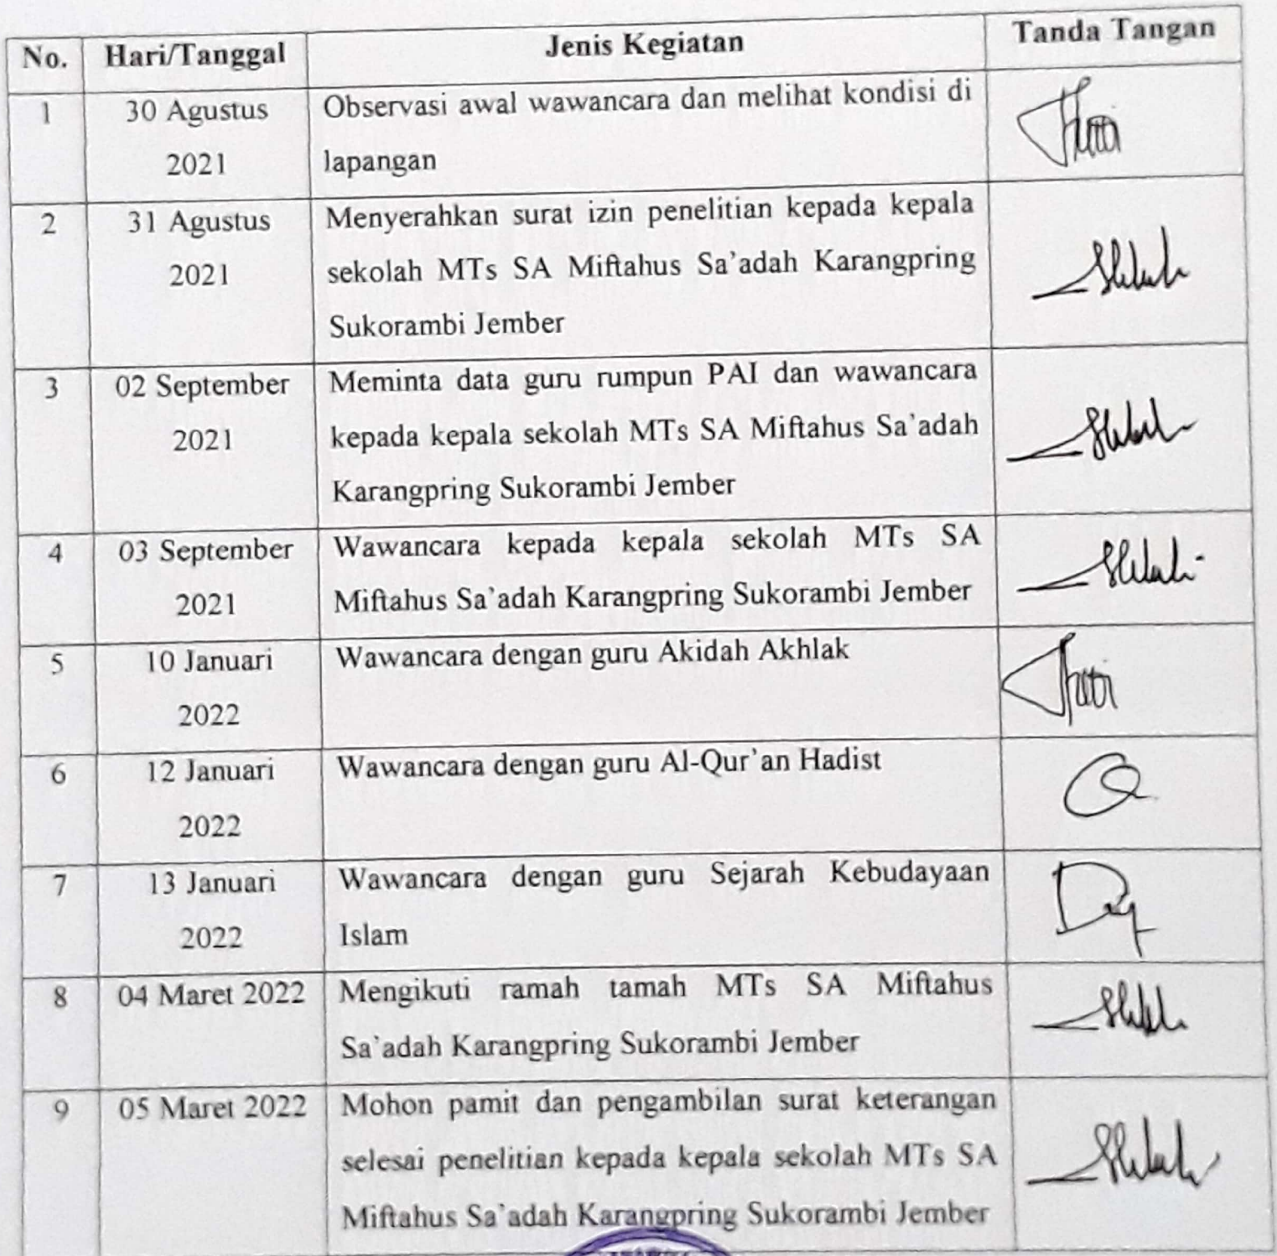 No. Hari/Tanggal Jenis Kegiatan Tanda Tangan
1 30 Agustus Observasi awal wawancara dan melihat kondisi di
2021 lapangan
2 31 Agustus Menyerahkan surat izin penelitian kepada kepala
2021 sekolah MTs SA Miftahus Sa'adah Karangpring
Sukorambi Jember
3 02 September Meminta data guru rumpun PAI dan wawancara
2021 kepada kepala sekolah MTs SA Miftahus Sa'adah
Karangpring Sukorambi Jember
4 03 September Wawancara kepada kepala sekolah MTs SA
2021 Miftahus Sa'adah Karangpring Sukorambi Jember
5 10 Januari Wawancara dengan guru Akidah Akhlak
2022
6 12 Januari Wawancara dengan guru Al-Qur'an Hadist
2022
7 13 Januari Wawancara dengan guru Sejarah Kebudayaan
2022 Islam
8 04 Maret 2022 Mengikuti ramah tamah MTs SA Miftahus
Sa'adah Karangpring Sukorambi Jember
9 05 Maret 2022 Mohon pamit dan pengambilan surat keterangan
selesai penelitian kepada kepala sekolah MTs SA
Miftahus Sa'adah Karangpring Sukorambi Jember